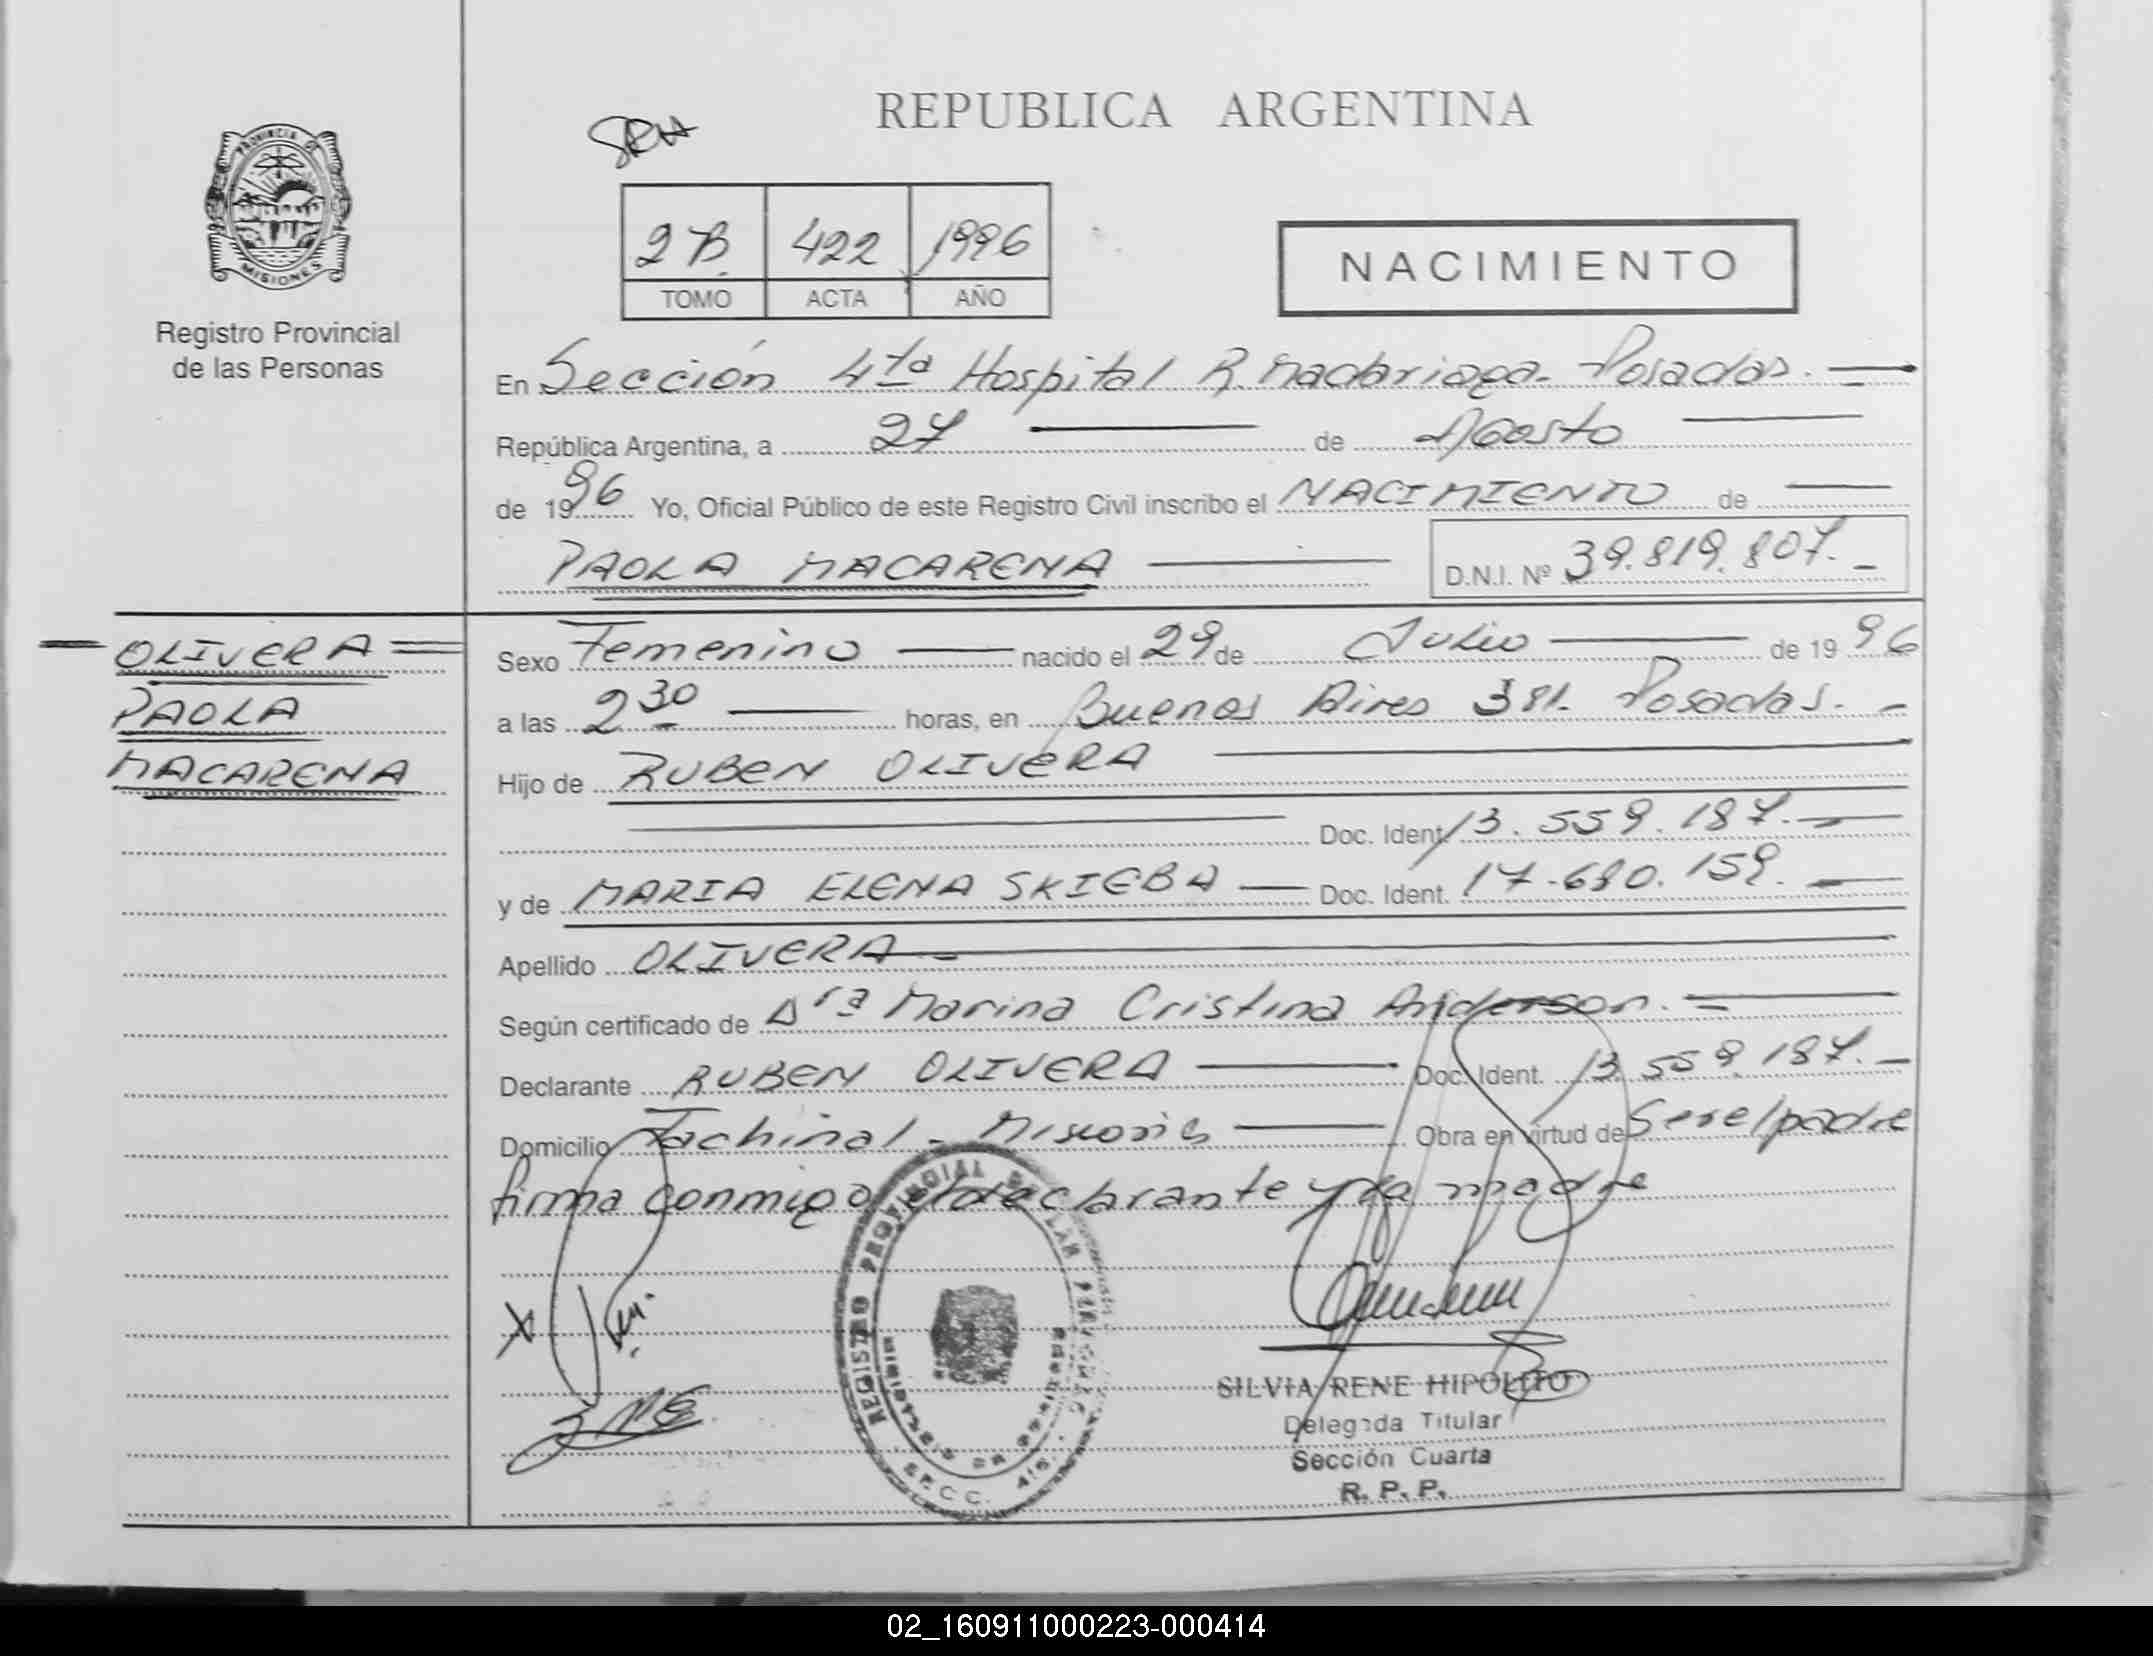 REPUBLICA ARGENTINA
SRH
PROVINCIA DE
MISIONES
Registro Provincial
de las Personas
2 B. 422 1996
TOMO ACTA AÑO
NACIMIENTO
En Sección 4ta Hospital R. Madariaga - Posadas. —
República Argentina, a 27 — de Agosto —
de 1996 Yo, Oficial Público de este Registro Civil inscribo el NACIMIENTO de —
PAOLA MACARENA — D.N.I. Nº 39.819.807. -
OLIVERA
PAOLA
MACARENA
Sexo Femenino — nacido el 29 de Julio — de 1996
a las 2 30 — horas, en Buenos Aires 381. Posadas. -
Hijo de RUBEN OLIVERA —
— Doc. Ident. 13.559.187. —
y de MARIA ELENA SKIEBA — Doc. Ident. 17.680.159. —
Apellido OLIVERA —
Según certificado de Dra Marina Cristina Anderson. —
Declarante RUBEN OLIVERA — Doc. Ident. 13.559.187. —
Domicilio Fachinal - Misiones — Obra en virtud de Ser el padre
firma conmigo el declarante y la madre
REGISTRO PROVINCIAL DE LAS PERSONAS
SILVIA RENE HIPOLITO
Delegada Titular
Sección Cuarta
R. P. P.
02_160911000223-000414